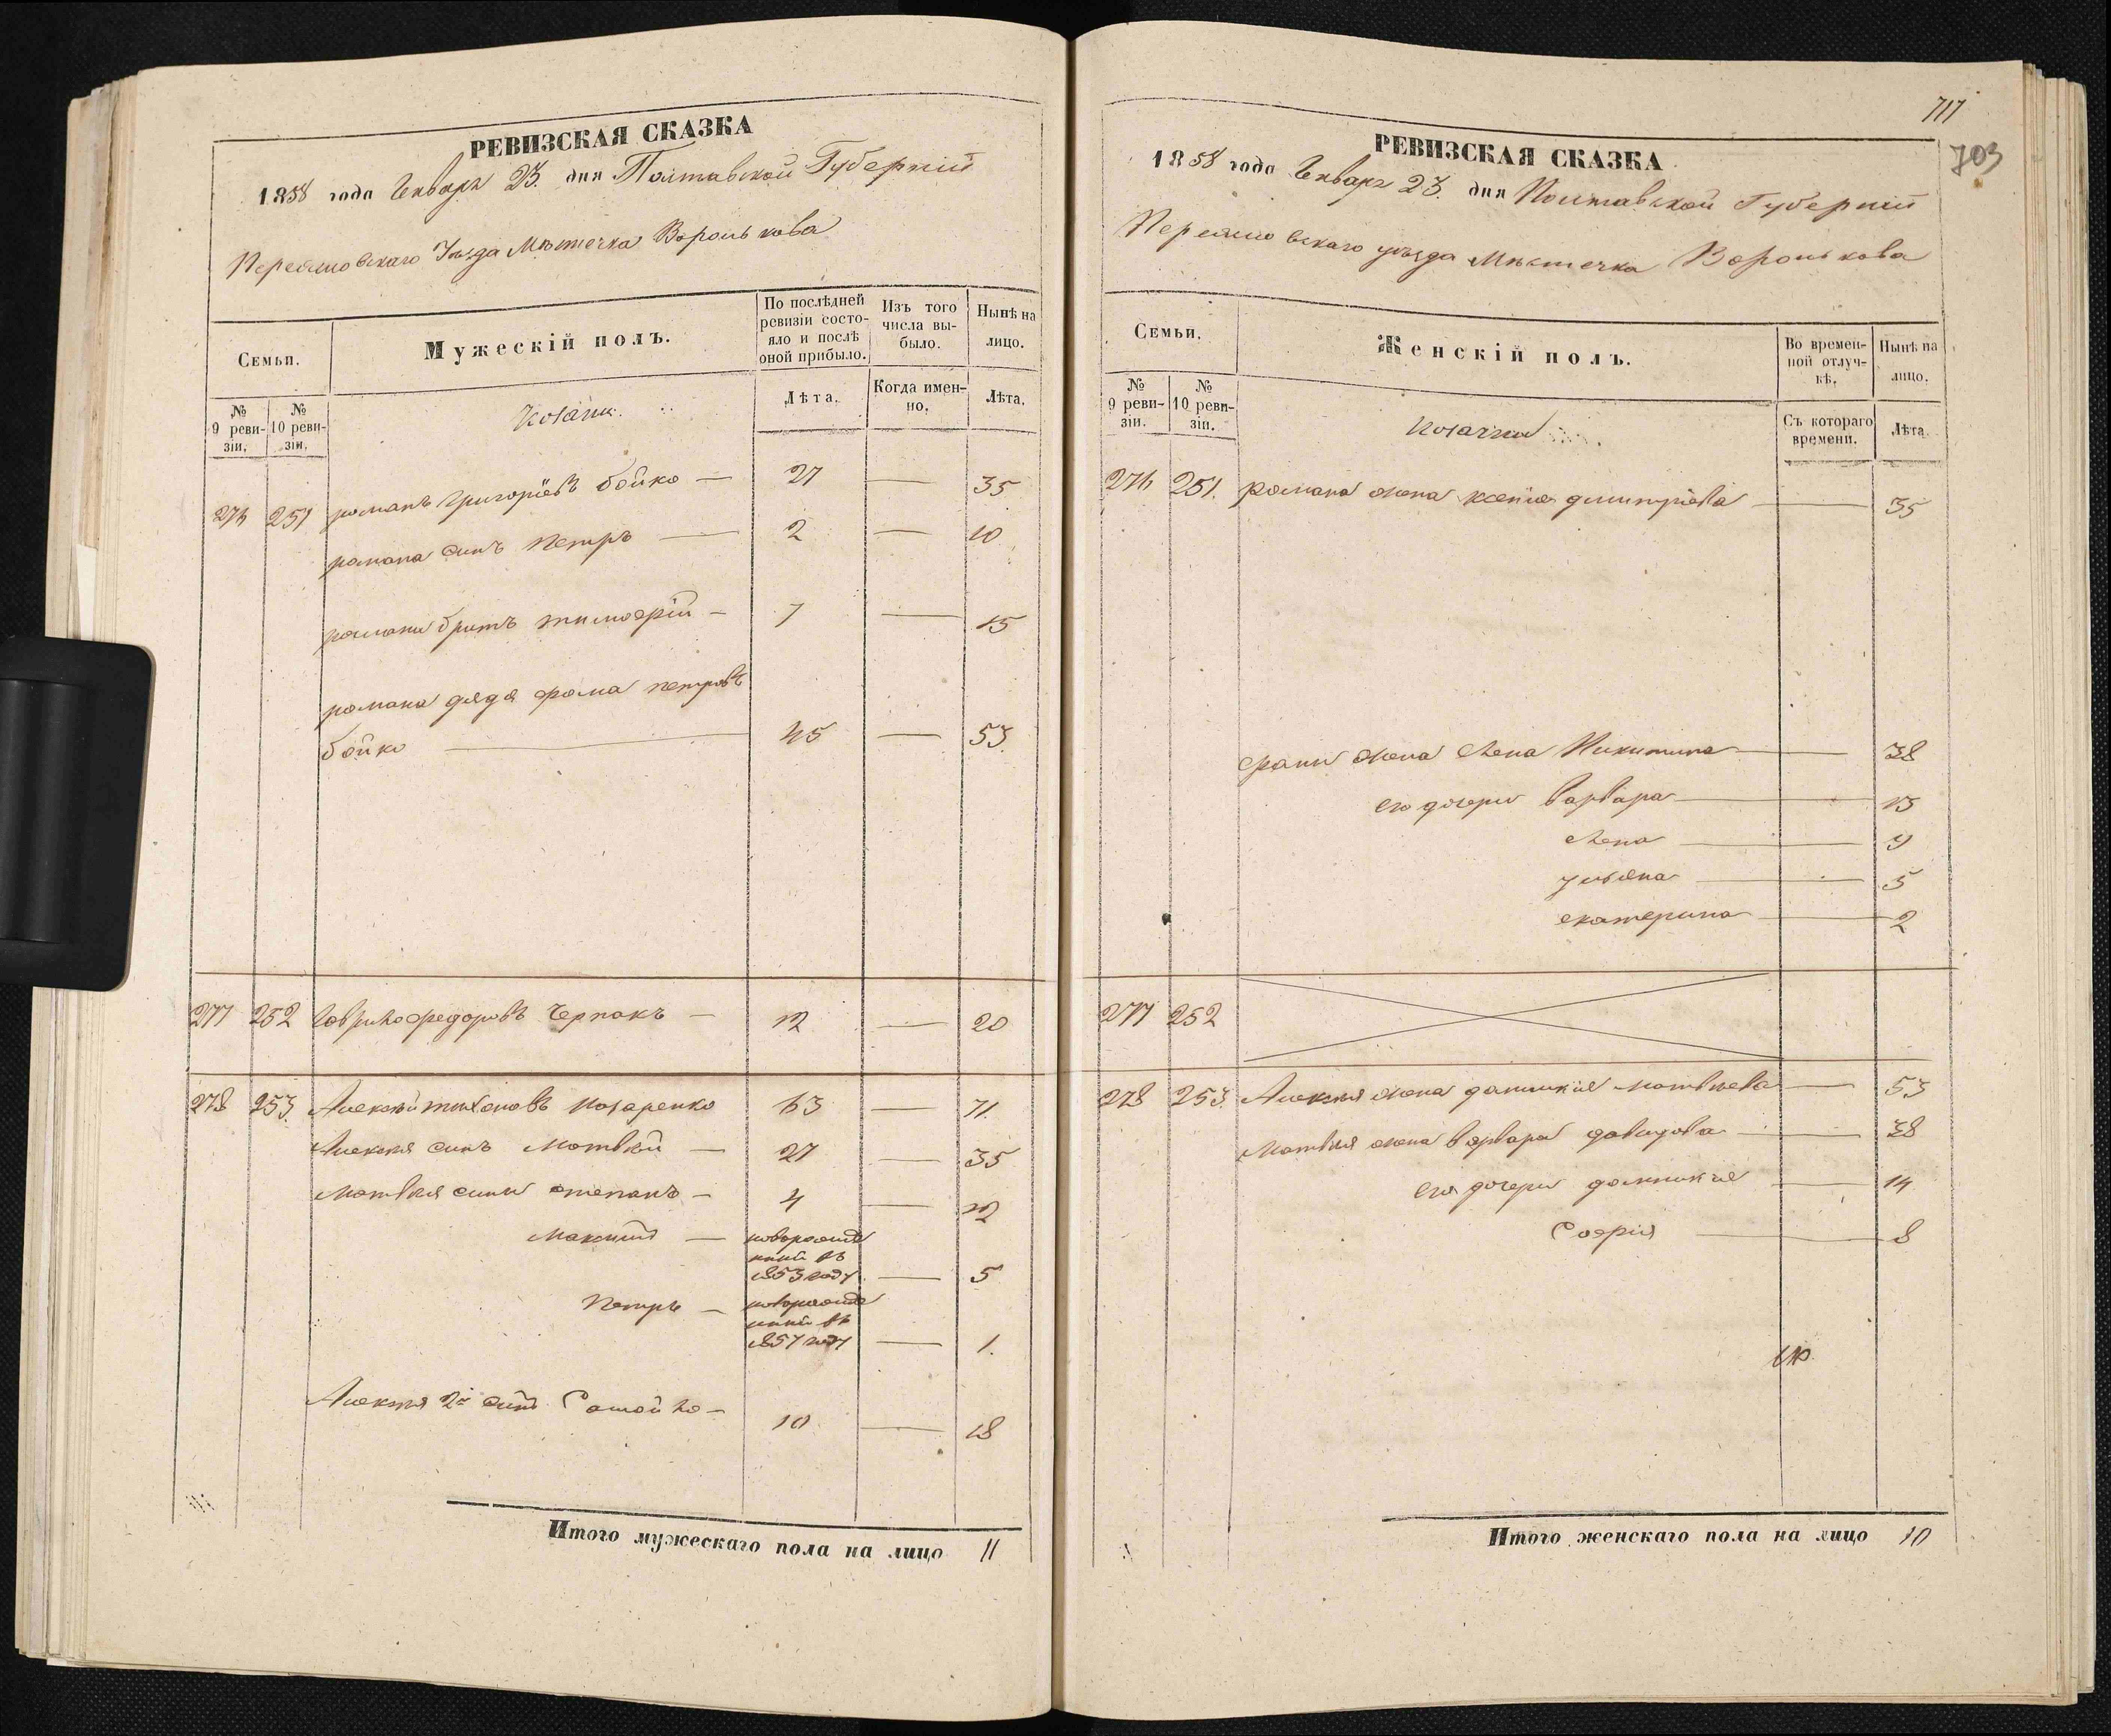 РЕВИЗСКАЯ СКАЗКА
1858 года Генваря 23. дня Полтавской Губерніи
Переяславскаго Уѣзда Мѣстечка Воронькова
Семьи.
Мужескій полъ.
По послѣдней ревизіи состояло и послѣ оной прибыло.
Изъ того числа выбыло.
Нынѣ на лицо.
№ 9 ревизіи.
№ 10 ревизіи.
Козаки.
Лѣта.
Когда именно.
Лѣта.
276 251 романъ григоріевъ бойко — 27 — 35
романа сынъ петръ — 2 — 10
романа братъ тимофій — 7 — 15
романа дядя фома петровъ
бойко — 45 — 53
277 252 гаврило федоровъ Черпакъ — 12 — 20
278 253. Алексѣй тихоновъ назаренко 63 — 71.
Алексѣя сынъ Матвѣй — 27 — 35
Матвѣя сыны степанъ — 4 — 12
Максимъ — новорожде
нный въ
1853 году — 5
Петръ — новорожде
нный въ
1857 году — 1.
Алексѣя 2й сынъ Самойло — 10 — 18
Итого мужескаго пола на лицо 11
717
703
РЕВИЗСКАЯ СКАЗКА
1858 года Генваря 23. дня Полтавской Губерніи
Переяславскаго уѣзда Мѣстечка Воронькова
Семьи.
Женскій полъ.
Во временной отлучкѣ.
Нынѣ на лицо.
№ 9 ревизіи.
№ 10 ревизіи.
Козачки
Съ котораго времени.
Лѣта.
276 251. романа жена ксенія дмитріева — 35
фомы жена Елена Никитина — 38
его дочери варвара — 13
Елена — 9
ульяна — 5
екатерина — 2
277 252
278 253. Алексѣя жена домникія матвѣева — 53
Матвѣя жена варвара давидова — 38
его дочери домникія — 14
Софія — 8
Итого женскаго пола на лицо 10